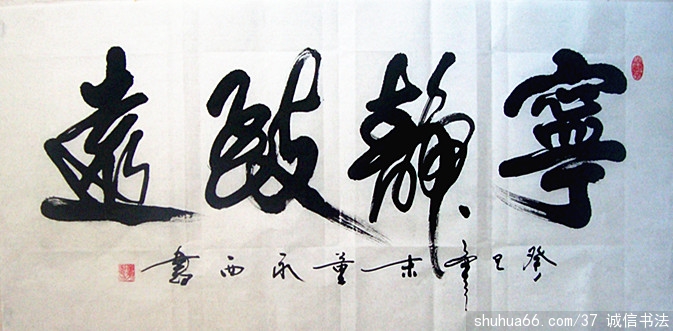 寧靜致遠
癸巳年末董承西書
shuhua66.com/37 诚信书法